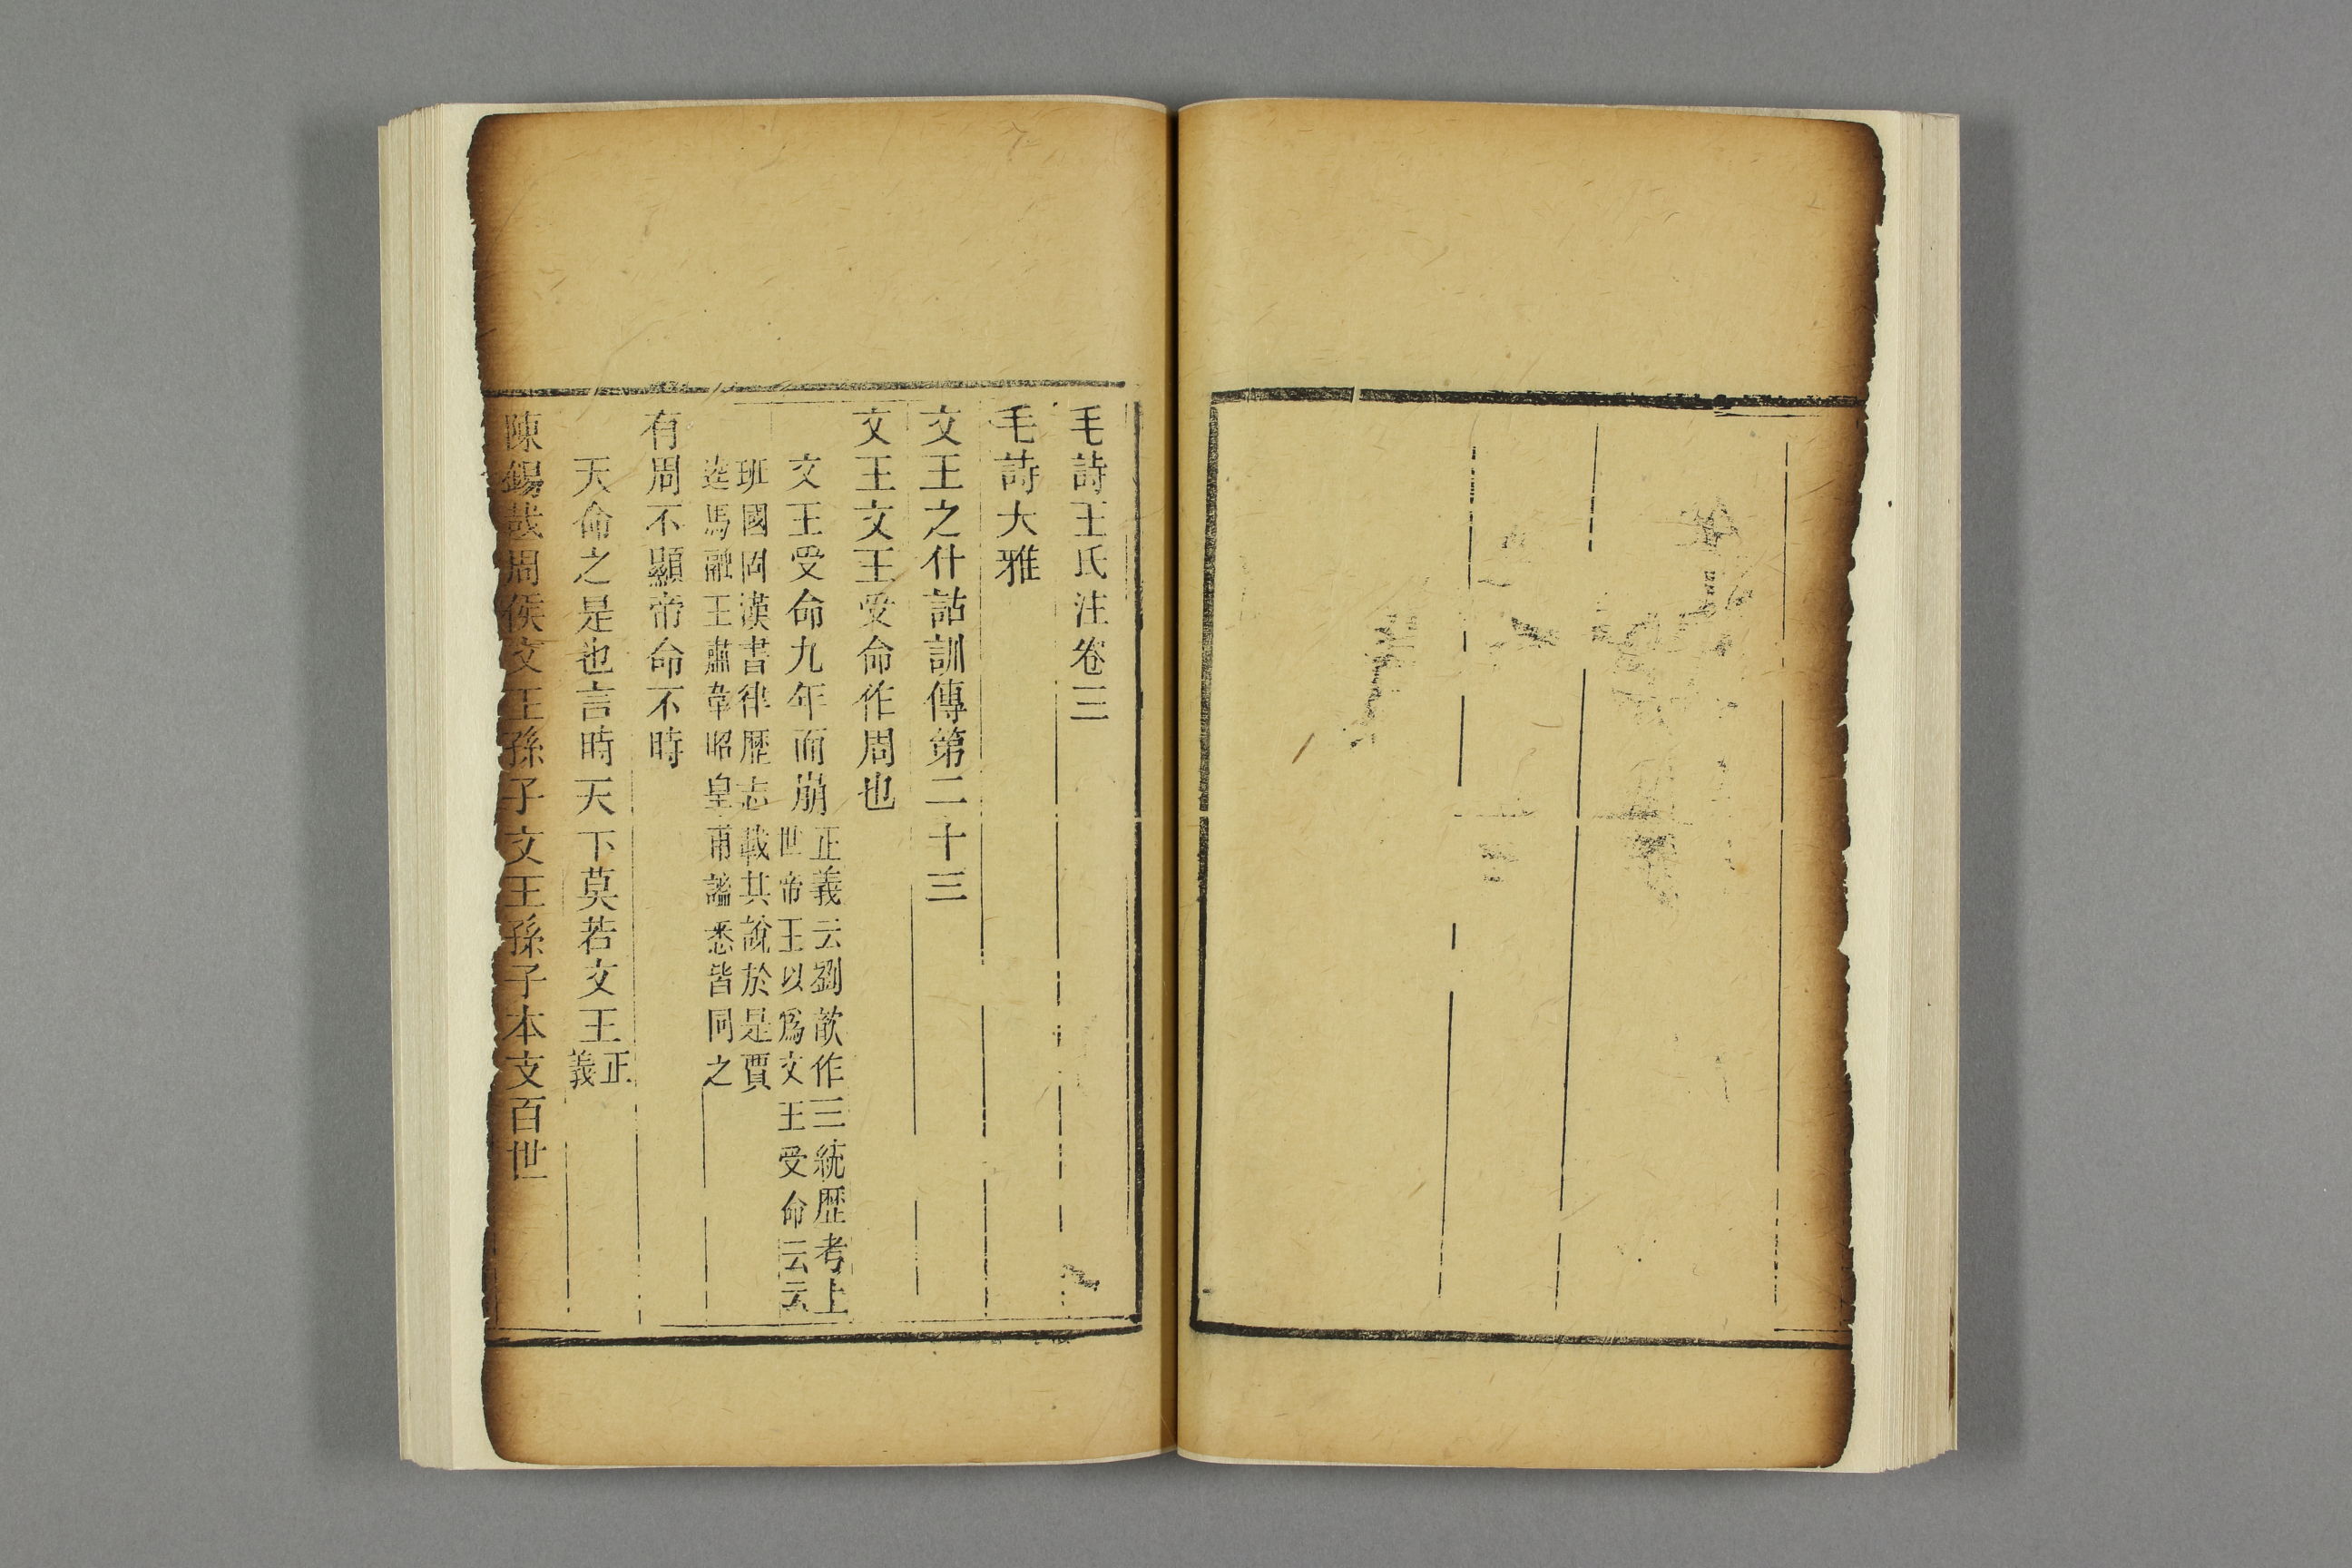 毛詩王氏注卷三
毛詩大雅
文王之什詁訓傳第二十三
文王文王受命作周也
文王受命九年而崩正義云劉歆作三統歷考上
世帝王以爲文王受命云云
班國固漢書律歷志載其說於是賈
逵馬融王肅韋昭皇甫謐悉皆同之
有周不顯帝命不時
天命之是也言時天下莫若文王正
義
陳錫哉周侯文王孫子文王孫子本支百世